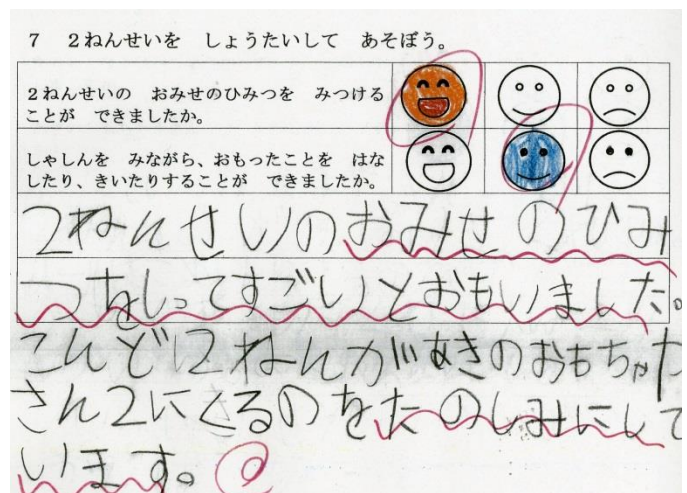 7　2ねんせいを　しょうたいして　あそぼう。
2ねんせいの　おみせのひみつを　みつける
ことが　できましたか。
しゃしんを　みながら、おもったことを　はな
したり、きいたりすることが　できましたか。
2ねんせいのおみせのひみ
つをしってすごいとおもいました。
こんど12ねんがあきのおもちゃや
さん2にくるのをたのしみにして
います。